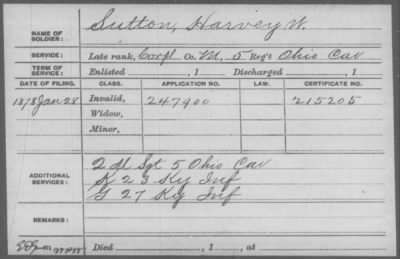 NAME OF SOLDIER: Sutton, Harvey W.
SERVICE: Late rank, Corpl Co. M, 5 Reg't Ohio Cav
TERM OF SERVICE: Enlisted , 1 Discharged , 1
DATE OF FILING. CLASS. APPLICATION NO. LAW. CERTIFICATE NO.
1878 Jan 28 Invalid, 247900 215205
Widow,
Minor,
ADDITIONAL SERVICES: 2 dl Sgt 5 Ohio Cav
K 23 Ky Inf
G 27 Ky Inf
REMARKS:
Died , 1 , at